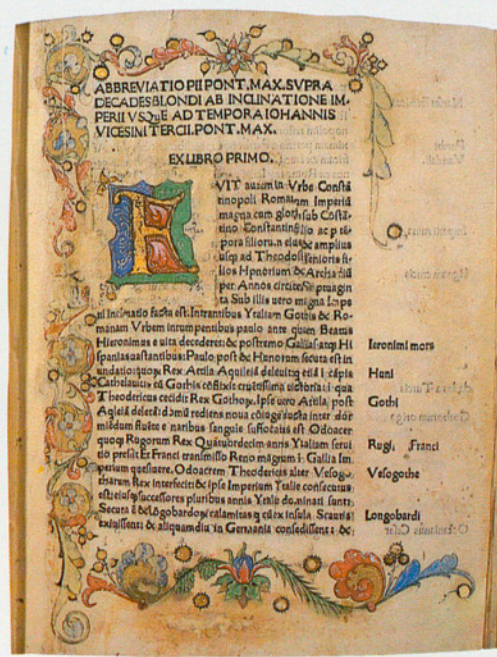 ABBREVIATIO PII PONT. MAX. SVPRA
DECADES BLONDI AB INCLINATIONE IM-
PERII VSQuE AD TEMPORA IOHANNIS
VICESINI TERCII. PONT. MAX.
EX LIBRO PRIMO.
VIT autem in Vrbe Constā
tinopoli Romanum Imperiū
magna cum gloria sub Cōstā-
tino Constantini filio ac p tē-
pora filiorum eius & amplius
usq ad Theodosii senioris fi-
lios Honorium & Archadiū
per Annos circiter Septuagin
ta Sub illis uero magna Impe
rii inclinatio facta est: Intrantibus Ytaliam Gothis & Ro-
manam Vrbem irrumpentibus paulo ante quam Beatus
Hieronimus e uita decederet: & postremo Gallias atq Hi
spanias uastantibus: Paulo post & Hunorum secuta est in
undatio: quorum Rex Attila Aquileiā deleuit
Cathelaunicis cū Gothis cōflixit cruētissima uictoria: i qua
Theodericus cecidit Rex Gothorum. Ipse uero Attila post
Aqleiā deletā: domū rediens noua cōiuge ducta inter dor
miēdum fluēte e naribus sanguīe suffocatus est Odoacer
quoq Rugorum Rex Quatuordecim annis Ytaliam serui
tio pressit Et Franci transmisso Reno magnum i Gallia Im
perium quesiuere. Odoacrem Theodericus alter Vesogo
tharum Rex interfecit: & ipse Imperium Ytalie consecutus
est: eiusq successores pluribus annis Ytalie dominati sunt:
Secuta ē & Lōgobardorum calamitas q cū ex insula Scauria
exiuissent: & aliquamdiu in Germania consedissent: &
Ieronimi mors
Huni
Gothi
Rugi. Franci
Vesogothe
Longobardi